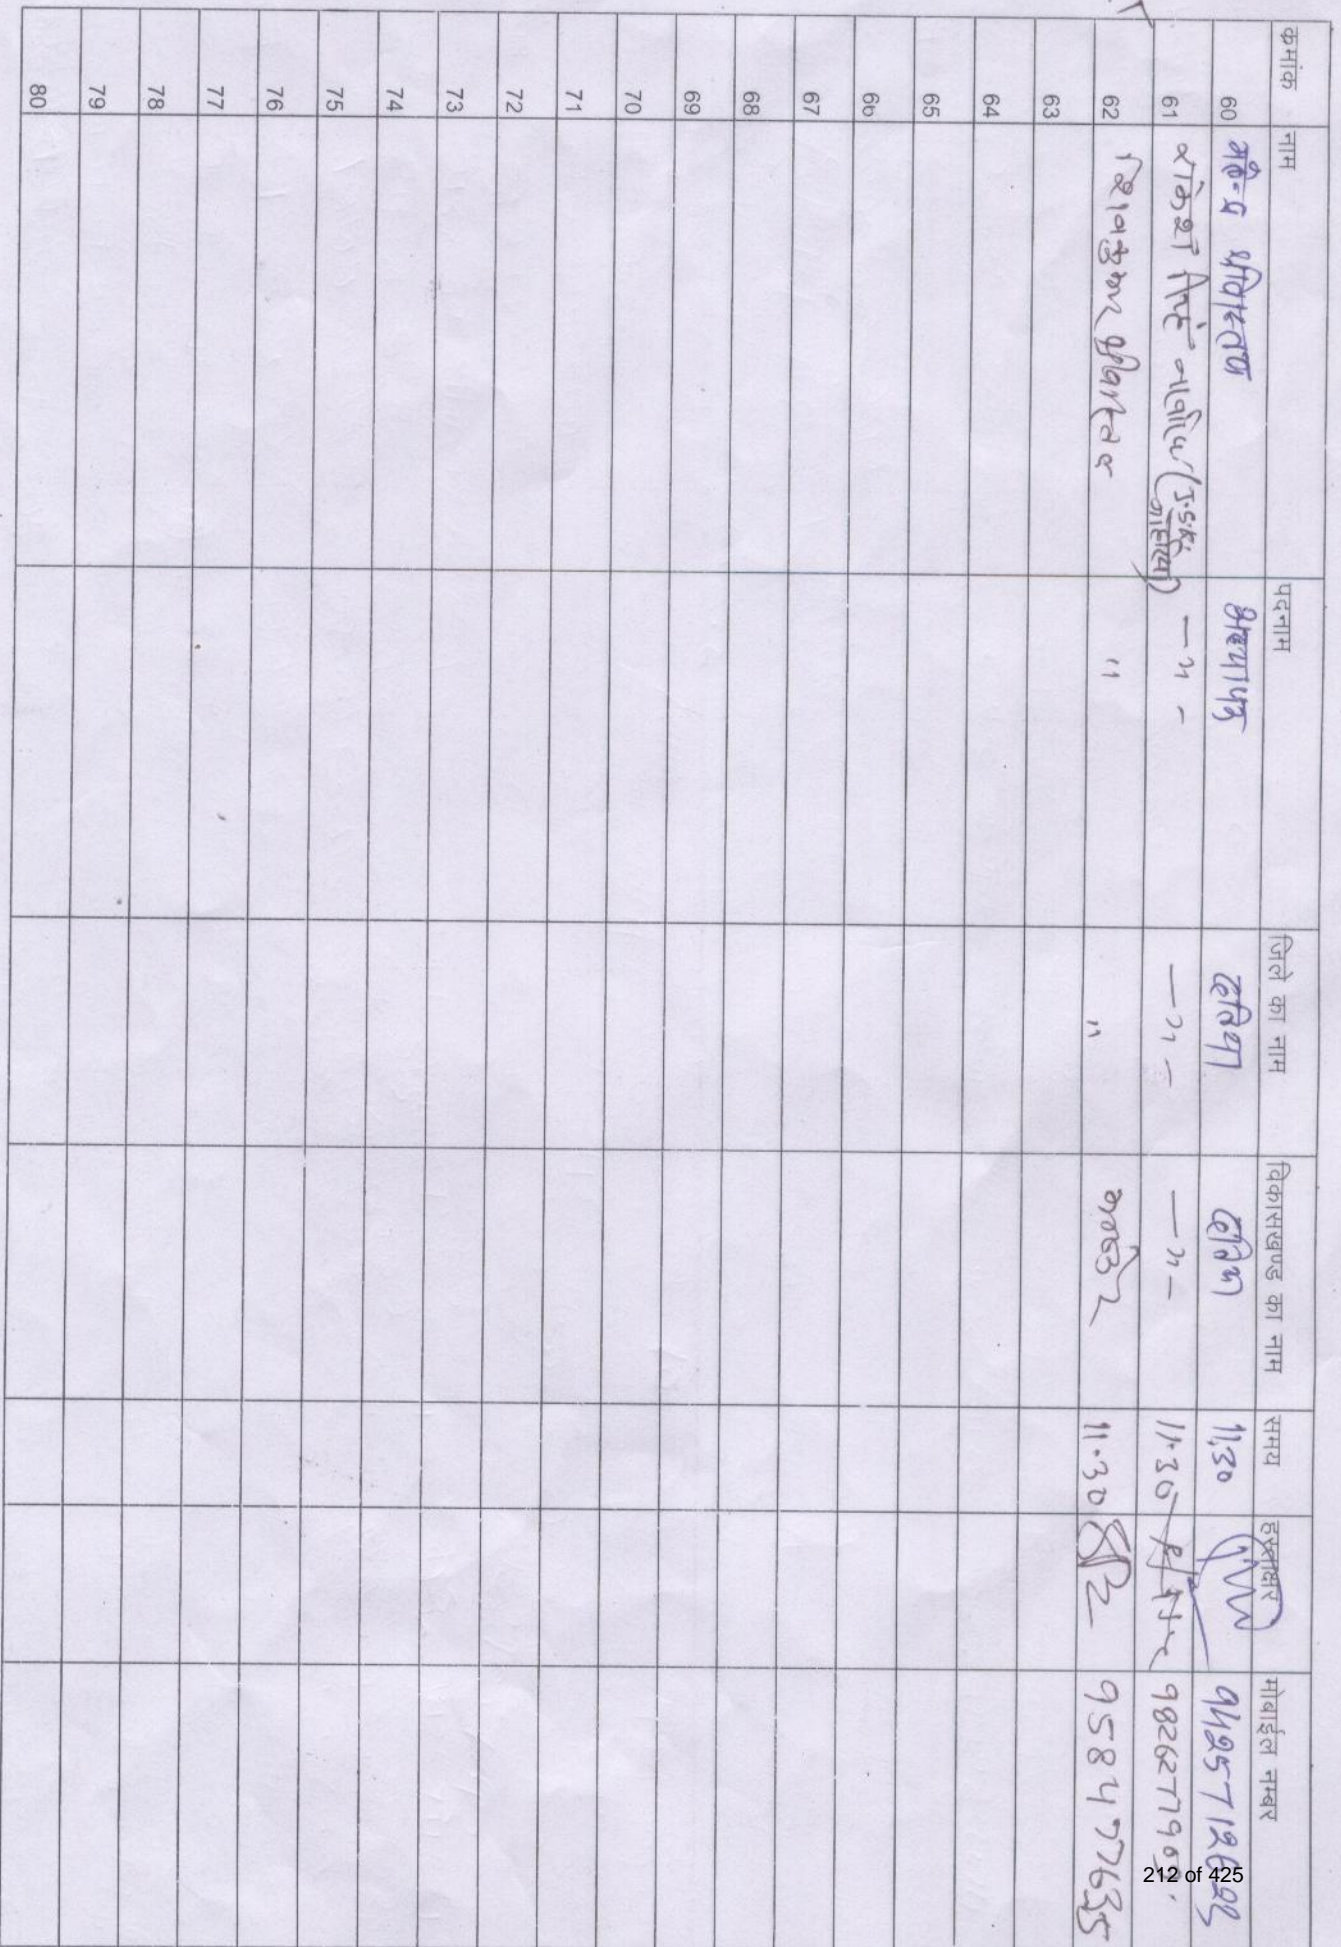 क्रमांक नाम पदनाम जिले का नाम विकासखण्ड का नाम समय हस्ताक्षर मोबाईल नम्बर
60 श्रीवास्तव अध्यापक दतिया दतिया 11.30
61 राकेश सिंह (J.S.K. —"— —"— —"— 11.30
62 शिवकुमार श्रीवास्तव " " भाण्डेर 11.30 9584777635
63
64
65
66
67
68
69
70
71
72
73
74
75
76
77
78
79
80
212 of 425